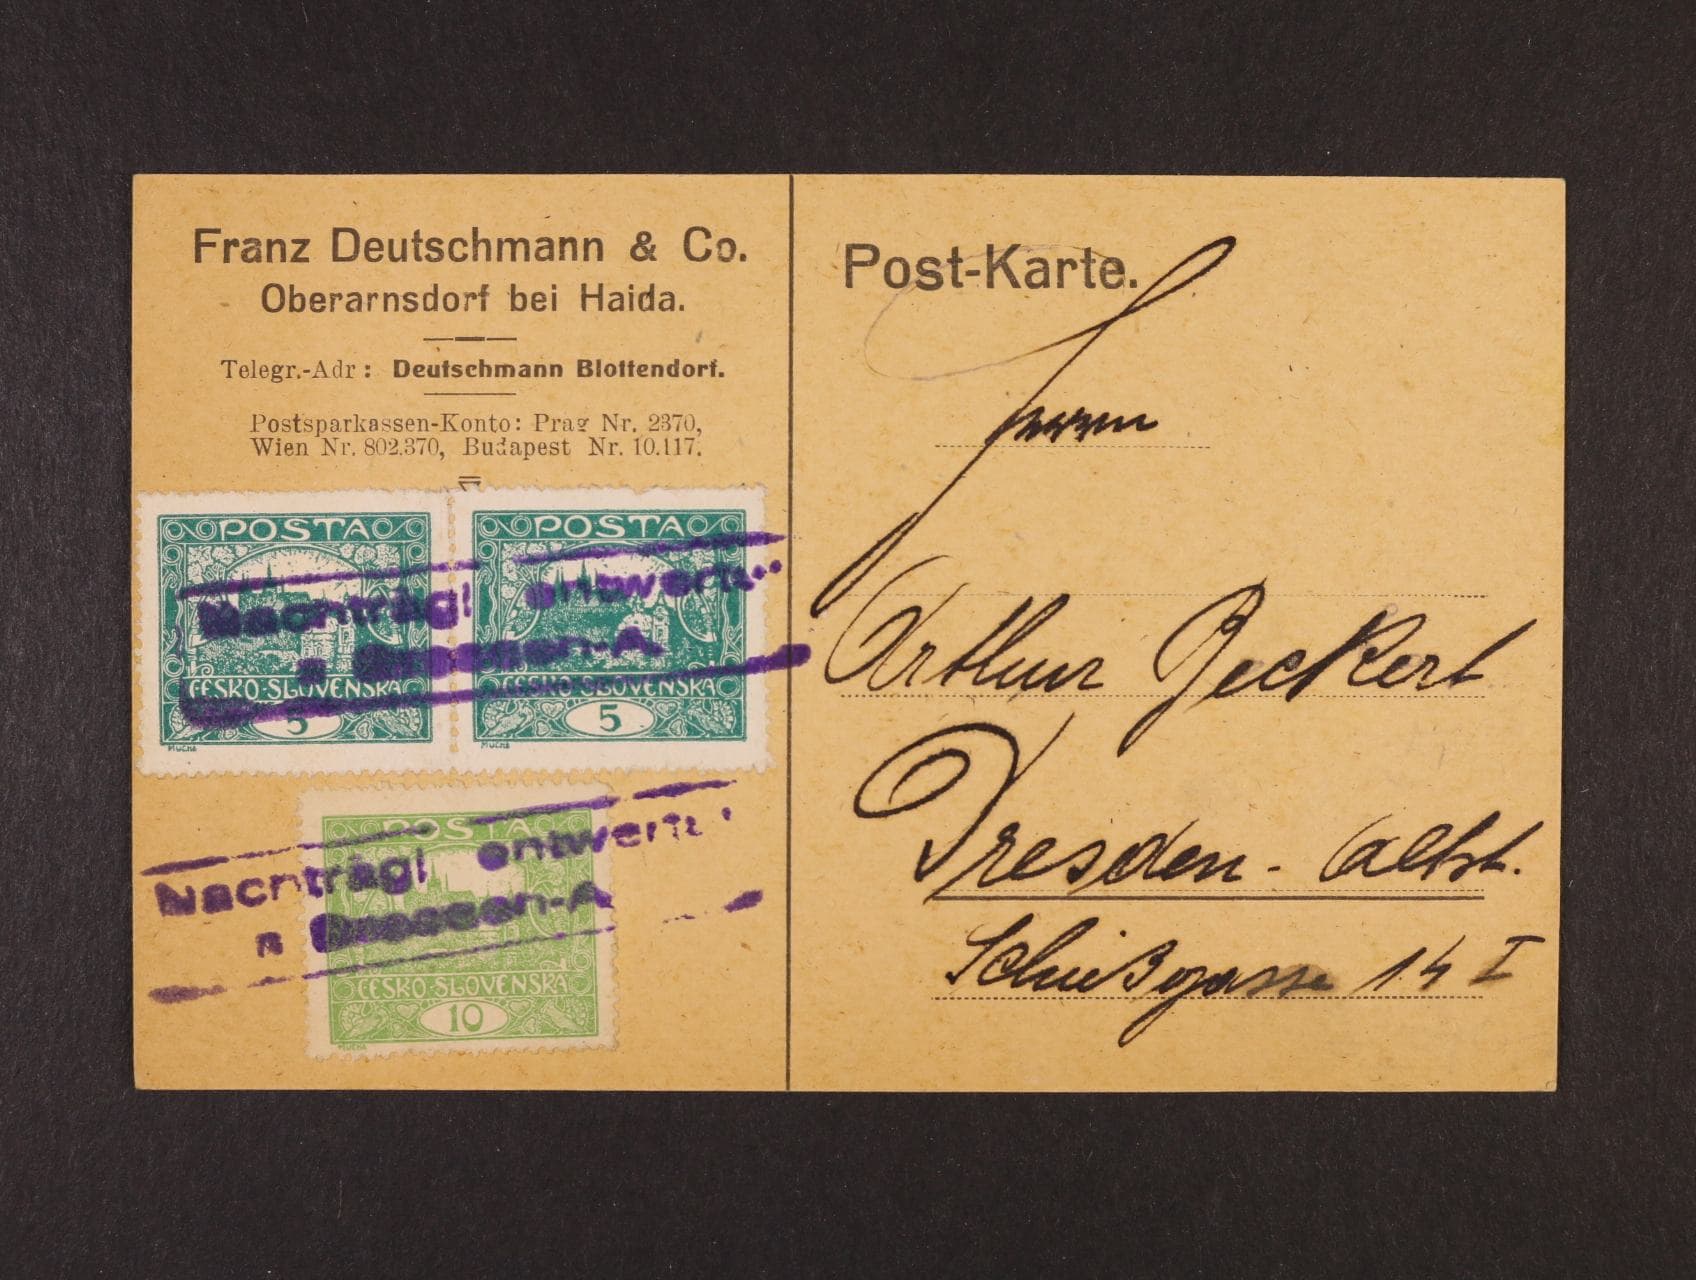 Franz Deutschmann & Co.
Oberarnsdorf bei Haida.
Telegr.-Adr: Deutschmann Blottendorf.
Postsparkassen-Konto: Prag Nr. 2370,
Wien Nr. 802.370, Budapest Nr. 10.117.
POSTA
ČESKO-SLOVENSKÁ
5
MUCHA
POSTA
ČESKO-SLOVENSKÁ
5
MUCHA
Nachträgl entwertet
Dresden-A.
POSTA
ČESKO-SLOVENSKÁ
10
MUCHA
Nachträgl entwertet
Dresden-A
Post-Karte.
Herrn
Arthur Beckert
Dresden-Altst.
Schießgasse 14 I